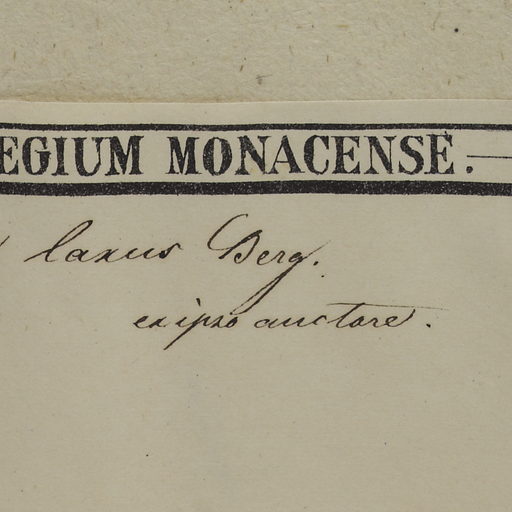 EGIUM MONACENSE.
laxus Berg.
ex ipso auctore.